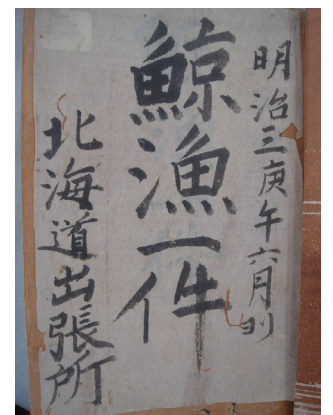 明治三庚午六月ヨリ
鯨漁一件
北海道出張所